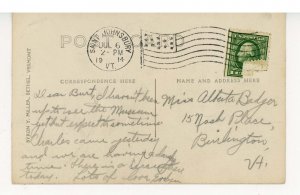 POST
SAINT JOHNSBURY
JUL 6
2-PM
1914
VT.
CORRESPONDENCE HERE
NAME AND ADDRESS HERE
Dear Burt, I haven't been
up to see the Museum
yet but expect to sometime
Charles came yesterday
and we are having a
time.
today. Lots of love
Miss Alberta
15 Nash Place,
Burlington,
Vt.